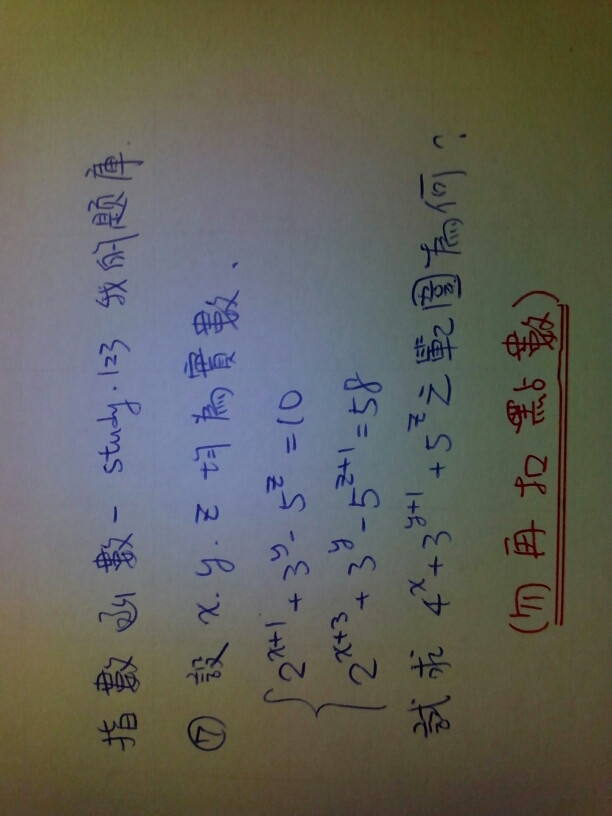 指數函數－study.123 我的題庫
⑦ 設 x.y.z 均為實數.
2^{x+1} + 3^y - 5^z = 10
2^{x+3} + 3^y - 5^{z+1} = 58
試求 4^x + 3^{y+1} + 5^z 之範圍為何?
(勿再扣點數)